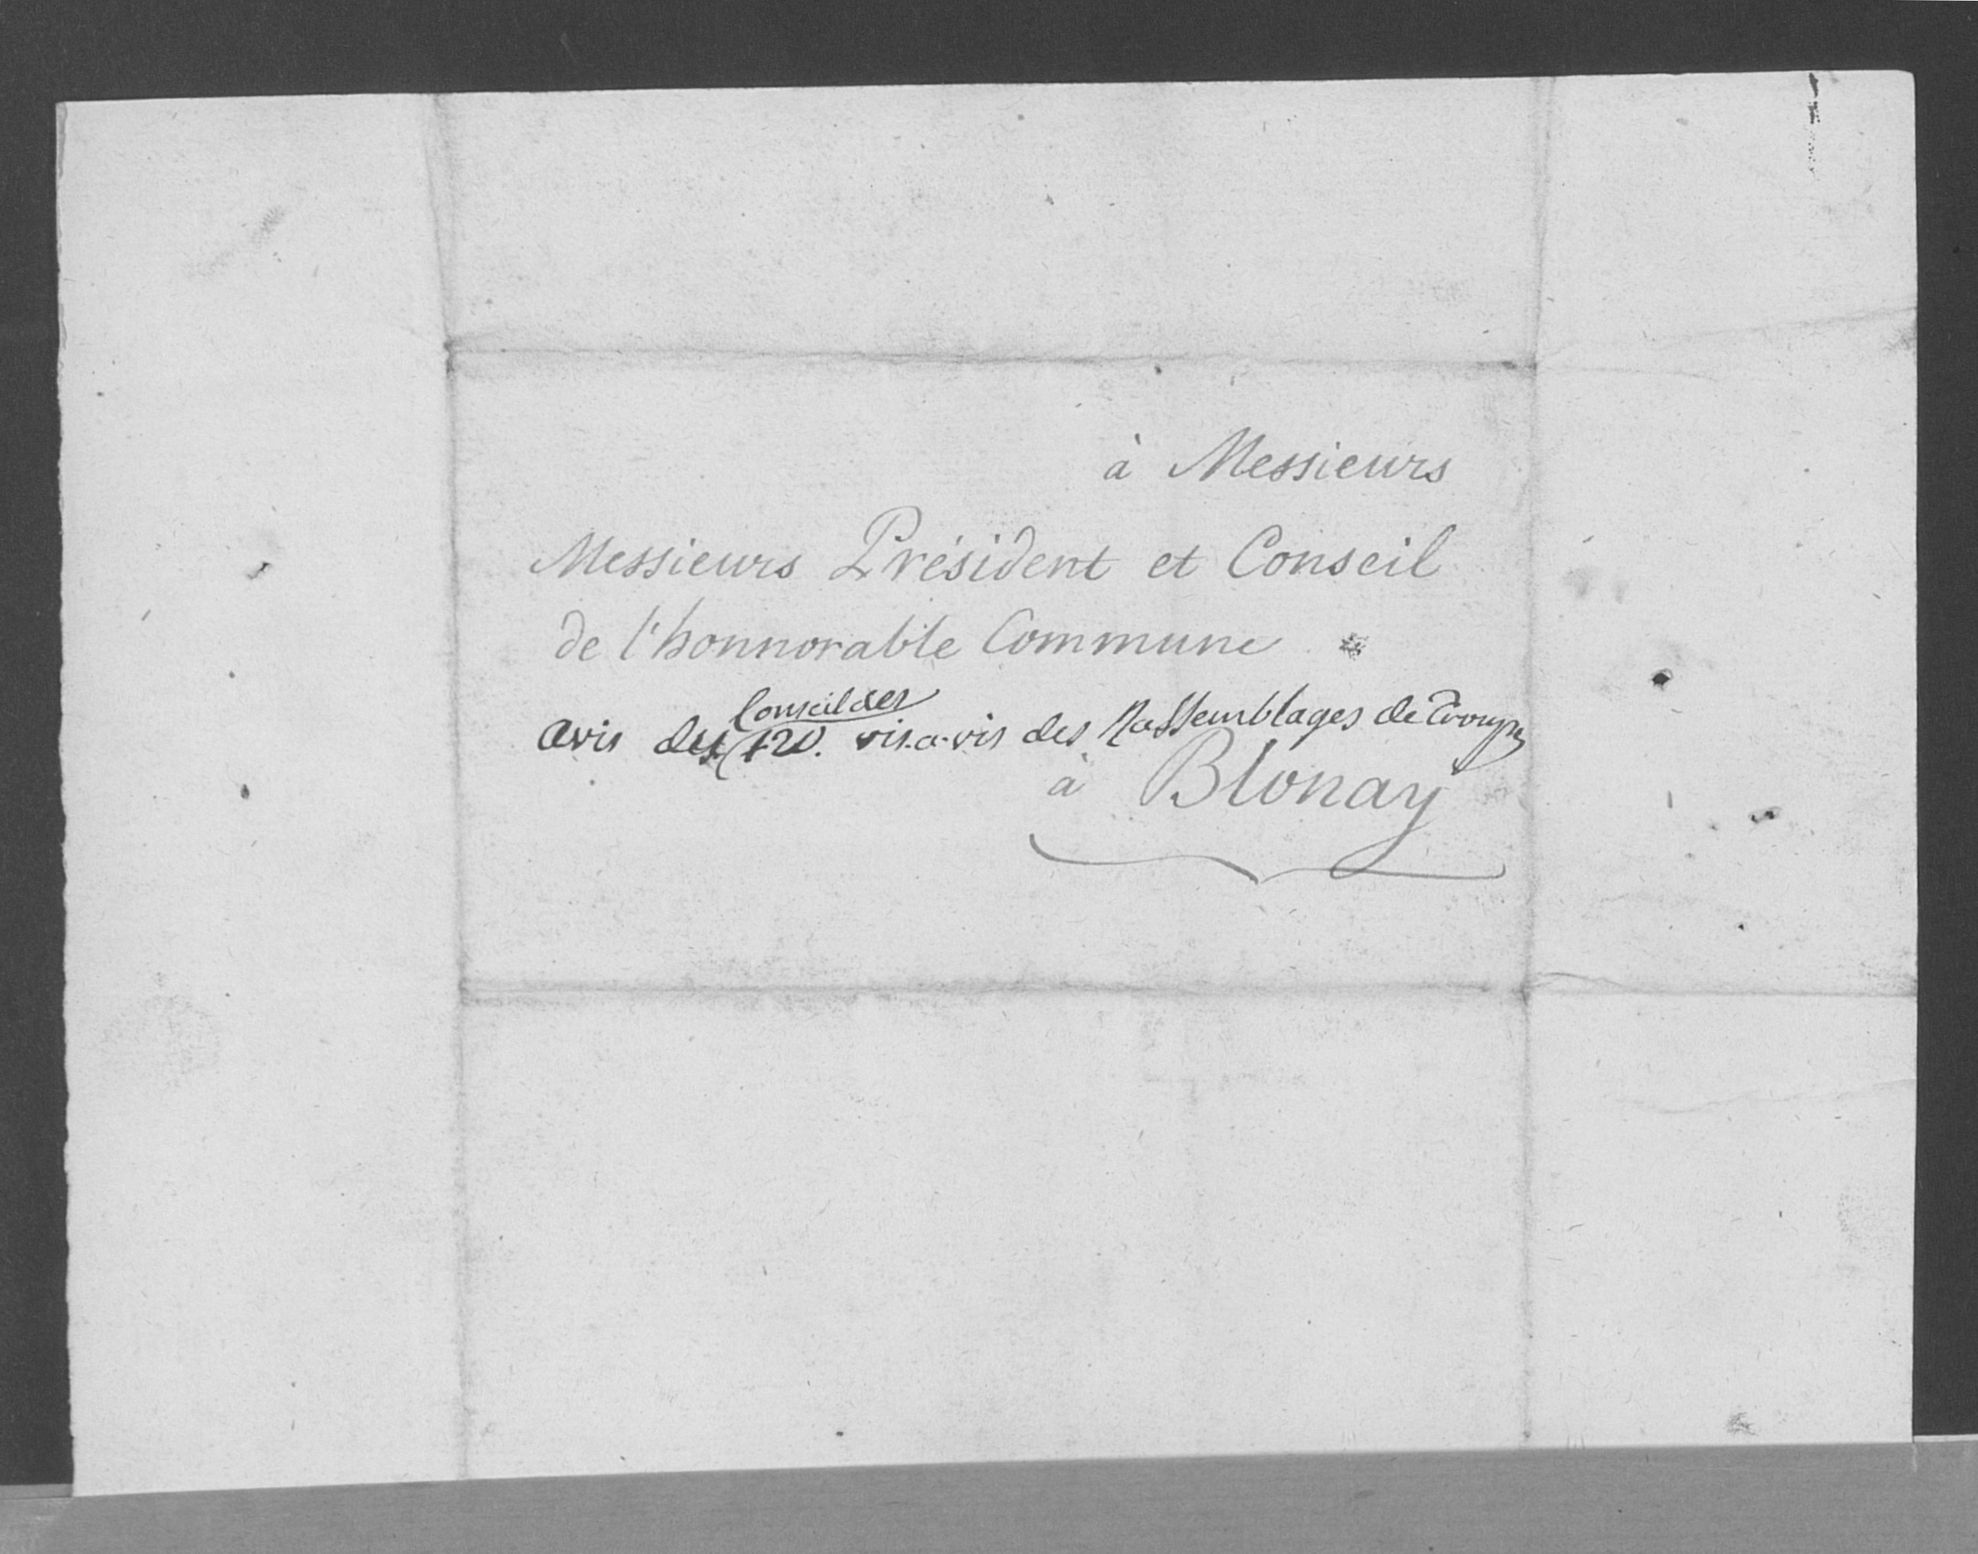 à Messieurs
Messieurs Président et Conseil
de l'honnorable Commune
Conseil des
avis des 120. vis-a-vis des Rassemblages de Troupes
à Blonay